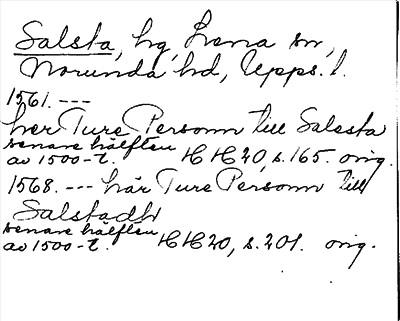 Salsta, hg, Lena sn,
Norunda hd, Upps. l.
1561. ---
her Ture Personn till Salesta
senare hälften
av 1500-t. HH20, s.165. orig.
1568. --- här Ture Personn till
Salstadh
senare hälften
av 1500-t. HH20, s.201. orig.